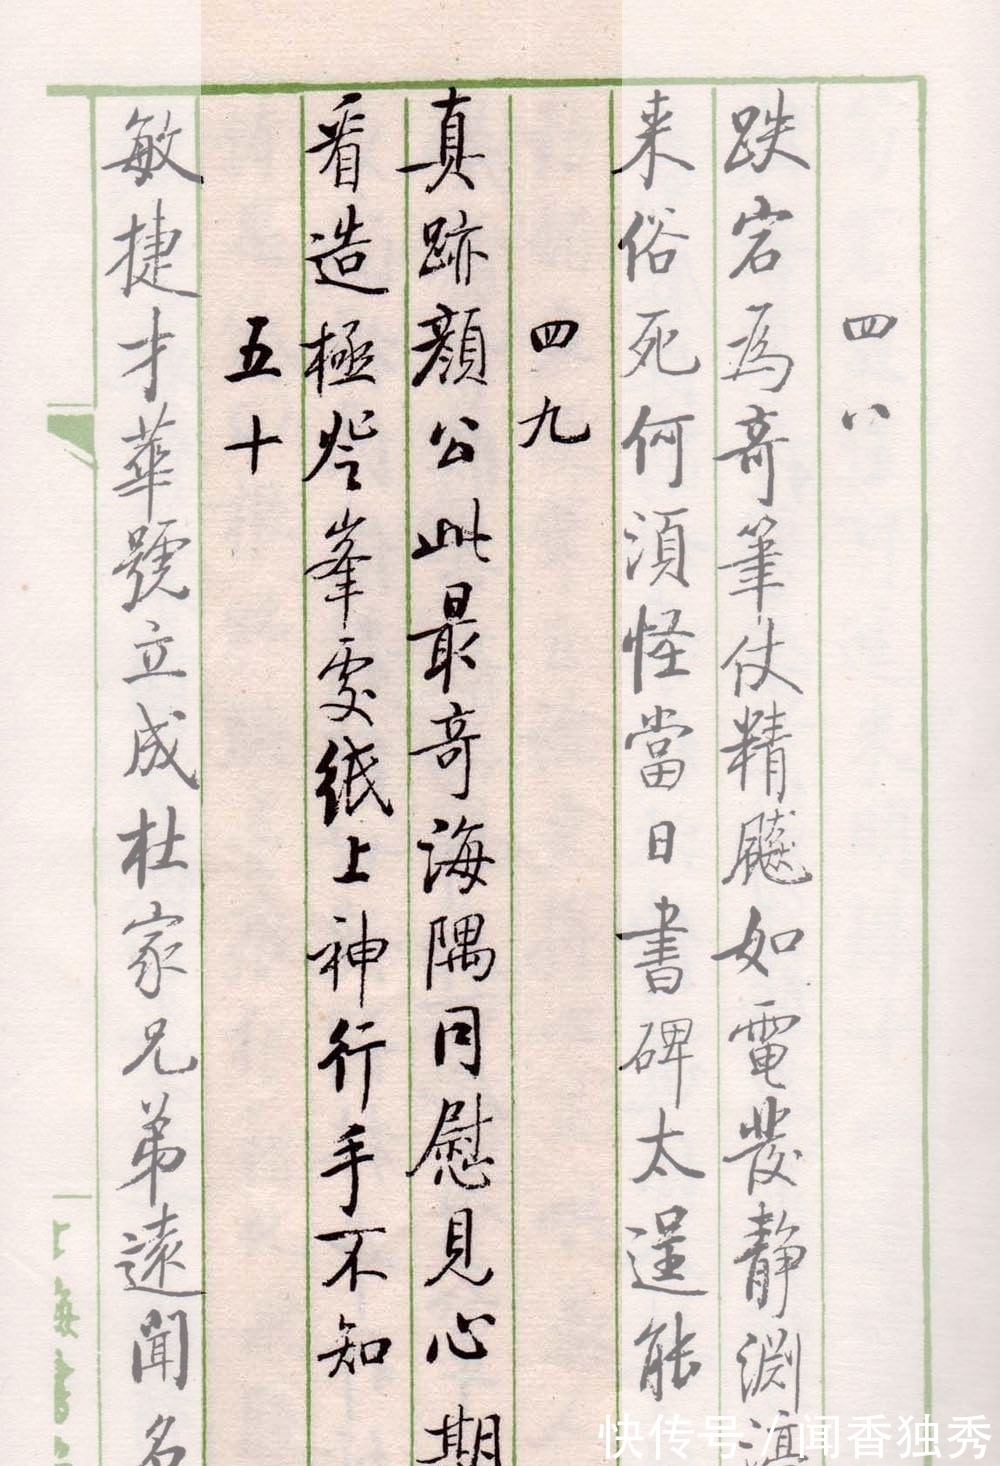 四八
跌宕為奇筆仗精飈如電發静渊渟
来俗死何須怪當日書碑太逞能
四九
真跡顔公此最奇海隅同慰見心期
看造極登峯處紙上神行手不知
五十
敏捷才華號立成杜家兄弟遠聞名
上海書
快传号/闻香独秀